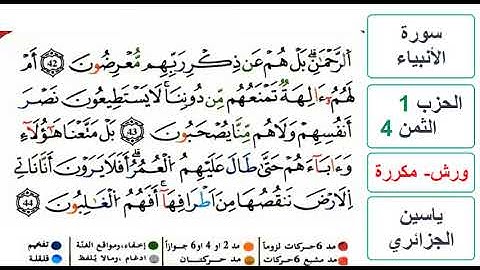 سورة
الأنبياء
الحزب 1
الثمن 4
ورش- مكررة
ياسين
الجزائري
اَ۬لرَّحْمَٰنِۖ بَلْ هُمْ عَن ذِكْرِ رَبِّهِم مُّعْرِضُونَۖ 42 أَمْ
لَهُمُۥٓ ءَالِهَةٞ تَمْنَعُهُم مِّن دُونِنَاۖ لَا يَسْتَطِيعُونَ نَصْرَ
أَنفُسِهِمْ وَلَا هُم مِّنَّا يُصْحَبُونَۖ 43 بَلْ مَتَّعْنَا هَٰٓؤُلَآءِ
وَءَابَآءَهُمْ حَتَّىٰ طَالَ عَلَيْهِمُ اُ۬لْعُمُرُۖ أَفَلَا يَرَوْنَ أَنَّا نَأْتِي
اِ۬لَارْضَ نَنقُصُهَا مِنَ اَطْرَافِهَآۖ أَفَهُمُ اُ۬لْغَٰلِبُونَۖ 44
مد 6 حركات لزوماً مد 2 أو 4 أو 6 جوازاً إخفاء، ومواقع الغنة تفخيم
مد مشبع 6 حركات مد حركتان إدغام ، ومالا يُلفظ قلقلة